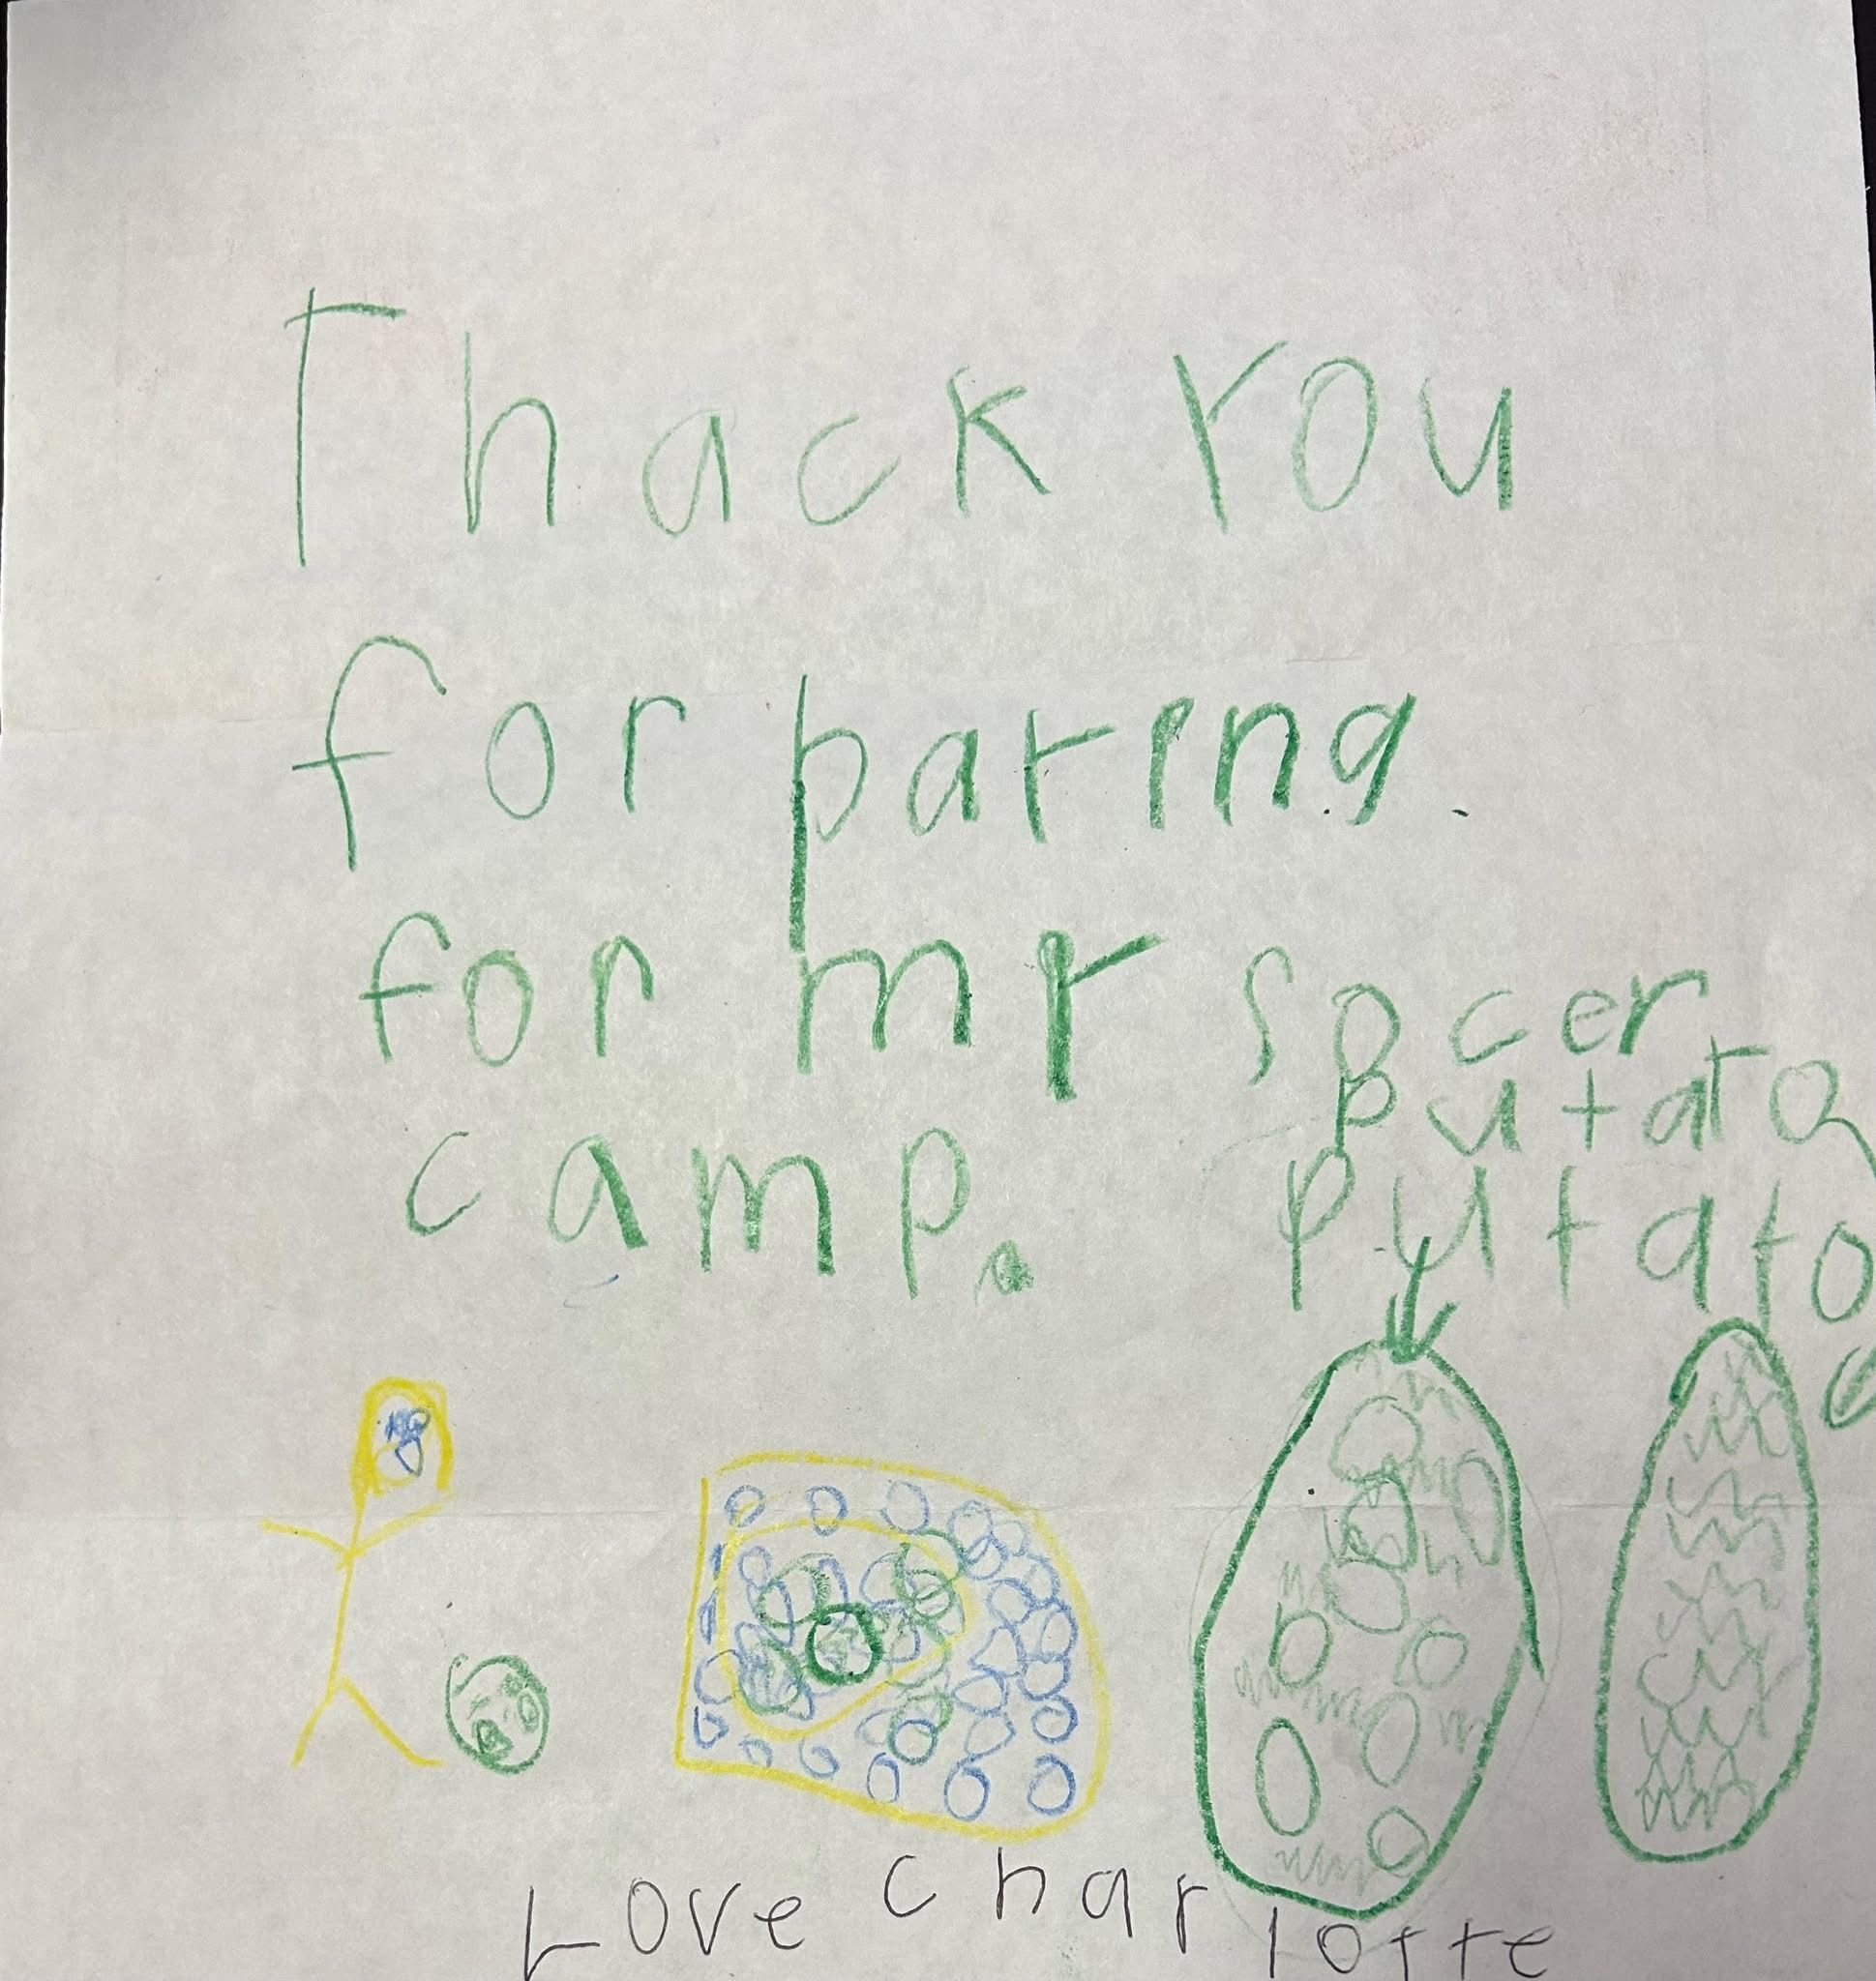 Thack You
for paring.
for mr socer
camp.
putato
putato
Love charlotte